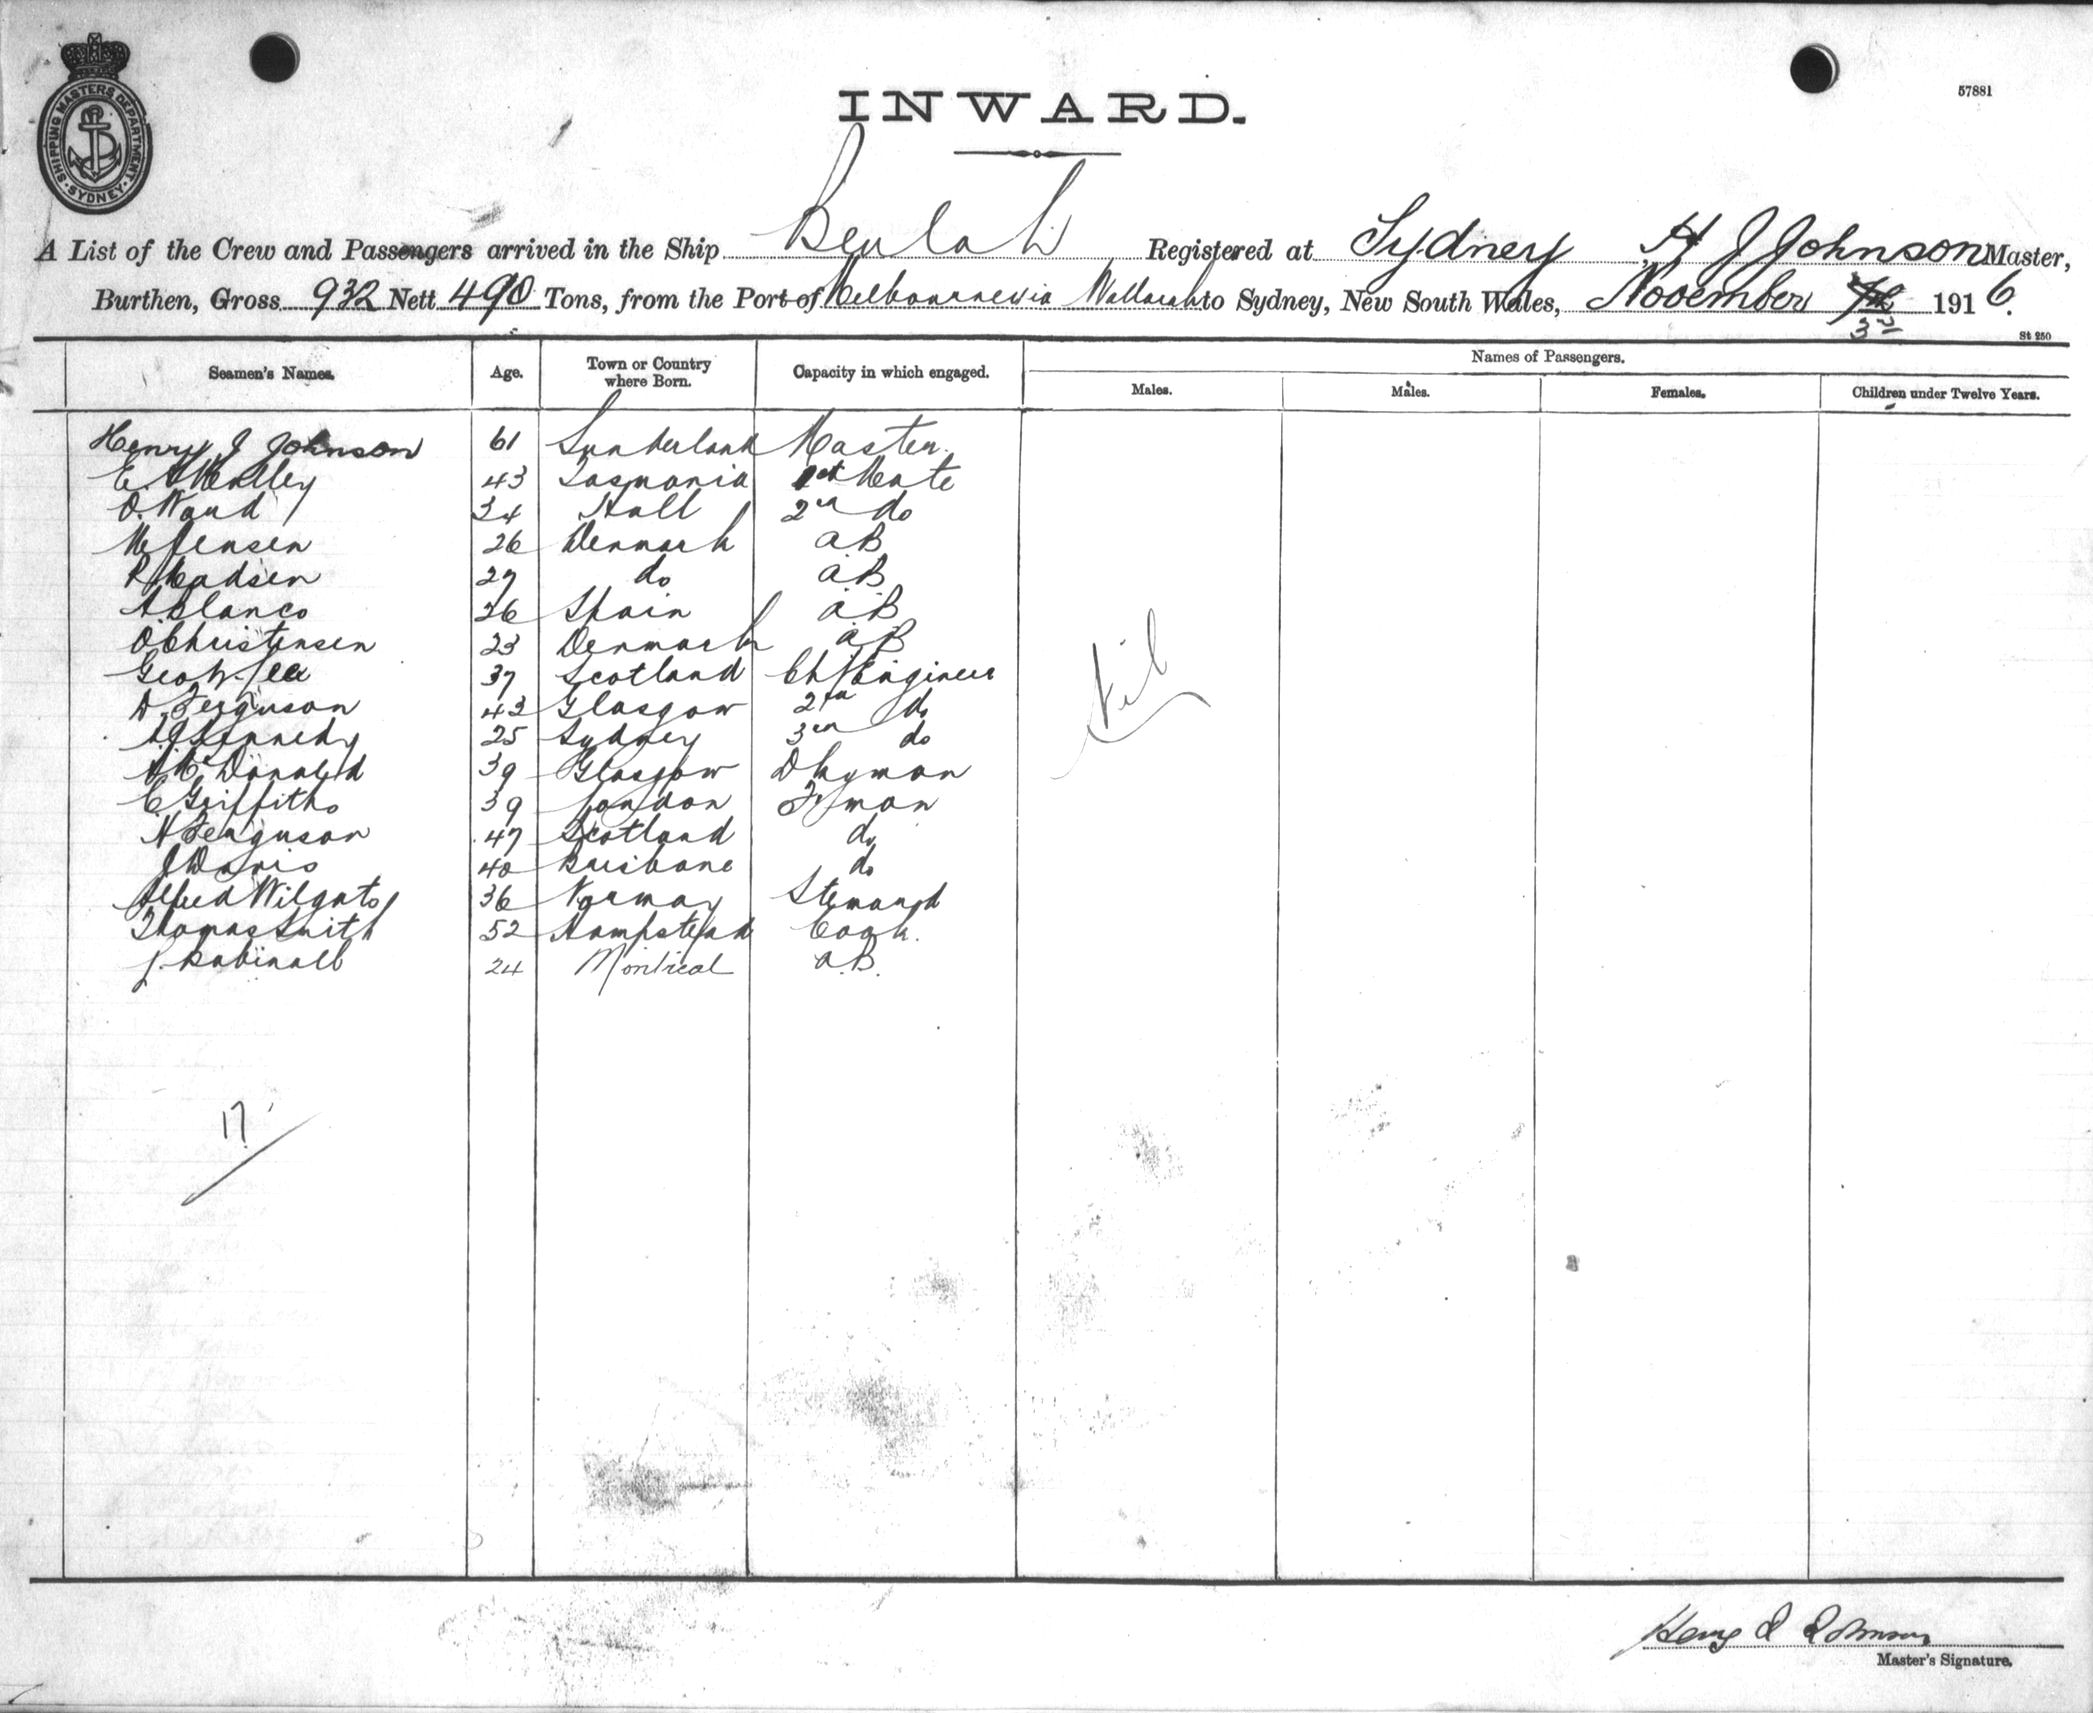 SHIPPING MASTERS DEPARTMENT
SYDNEY
57881
INWARD.
A List of the Crew and Passengers arrived in the Ship Beulah Registered at Sydney, H J Johnson Master,
Burthen, Gross 932 Nett 490 Tons, from the Port of Melbourne via Wallarah to Sydney, New South Wales, November 3rd 1916.
St 250
Seamen's Names. Age. Town or Country where Born. Capacity in which engaged. Names of Passengers.
Males. Males. Females. Children under Twelve Years.
Henry J Johnson 61 Sunderland Master.
E. 43 Tasmania 1st Mate
O. Waud 34 Hull 2nd do
M Jensen 26 Denmark AB
P Madsen 27 do AB
A Blanco 26 Spain AB
O Christensen 23 Denmark AB
Geo 37 Scotland Ch Engineer
D. Ferguson 43 Glasgow 2nd do
A J Kennedy 25 Sydney 3rd do
A McDonald 39 Glasgow Dkyman
C Griffiths 39 London Fman
H Ferguson 47 Scotland do
J Davis 40 Brisbane do
Alfred Wilgats 36 Norway Steward
Thomas Smith 52 Hampstead Cook.
J. 24 Montreal A.B.
Nil
17
Henry J Johnson
Master's Signature.